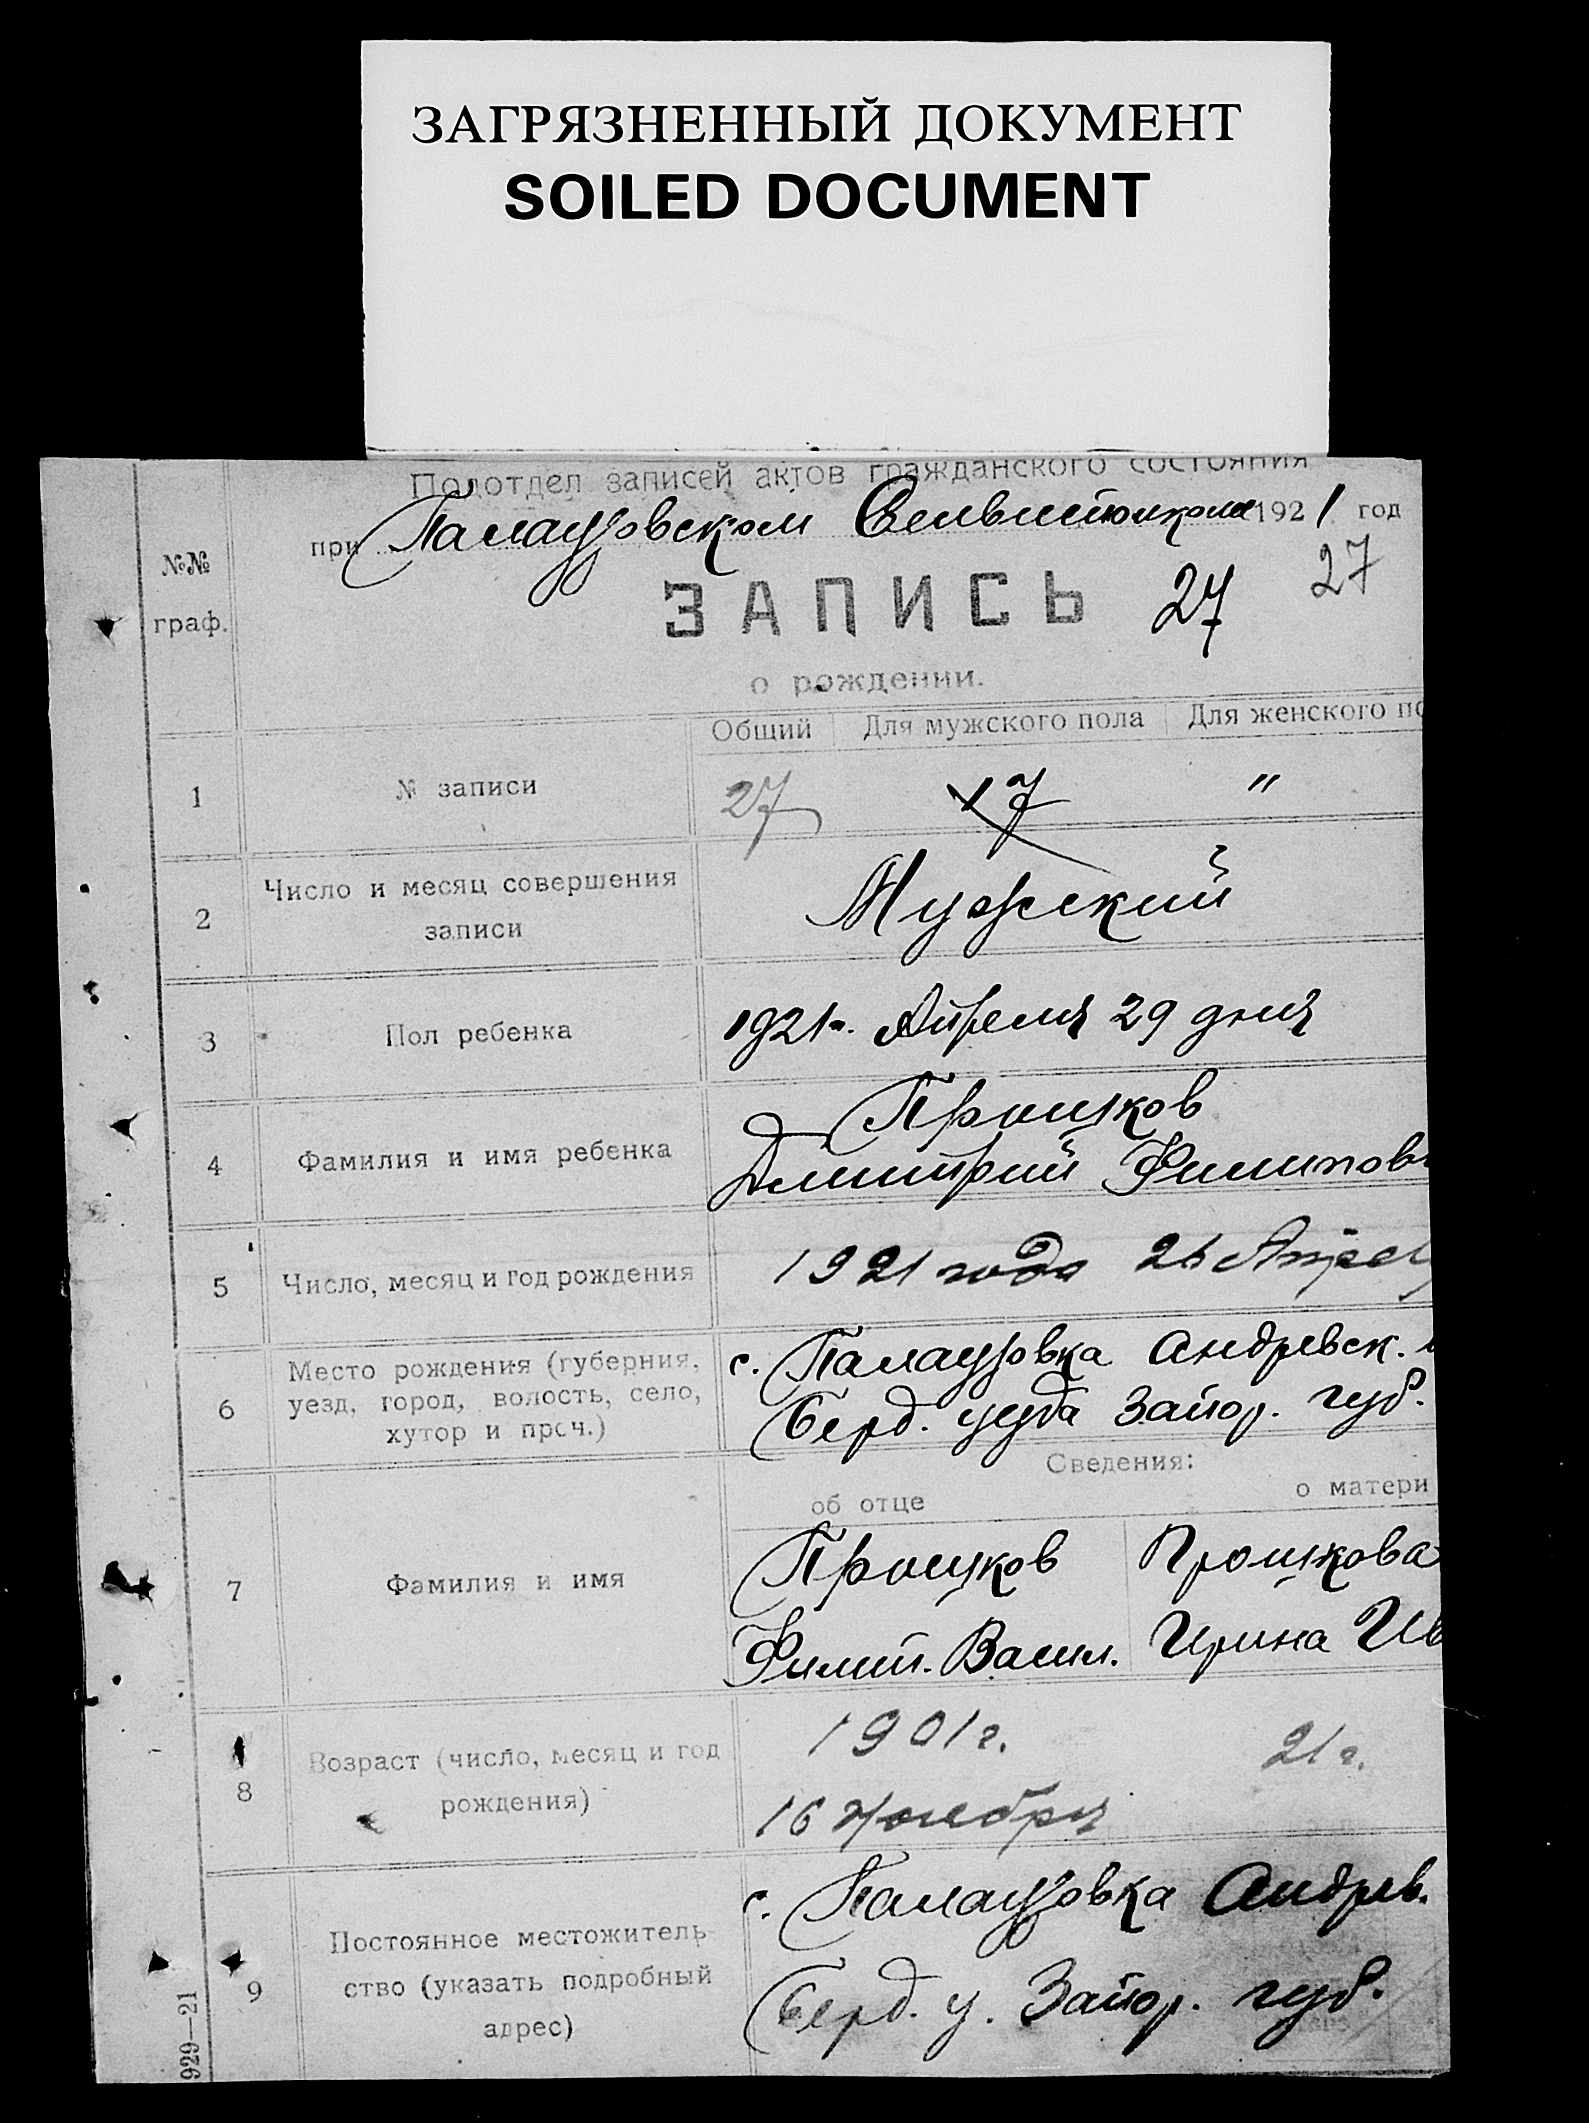 ЗАГРЯЗНЕННЫЙ ДОКУМЕНТ
SOILED DOCUMENT
Подотдел записей актов гражданского состояния
при Палаузовском 1921 год
№№ граф.
ЗАПИСЬ 27 27
о рождении.
Общий Для мужского пола Для женского по
1 № записи 27 17 "
2 Число и месяц совершения
записи
Мужский
3 Пол ребенка 1921 г. Апреля 29 дня
4 Фамилия и имя ребенка
Прошков
Дмитрий Филипов
5 Число, месяц и год рождения 1921 года 26 Апрел
6 Место рождения (губерния,
уезд, город, волость, село,
хутор и проч.)
с. Палаузовка Андревск.
Берд. уезда Запор. губ.
Сведения:
об отце о матери
7 Фамилия и имя
Прошков Прошкова
Филип. Васил. Ирина Ив
8 Возраст (число, месяц и год
рождения)
1901 г. 21 г.
16 Ноября
9 Постоянное местожитель-
ство (указать подробный
адрес)
с. Палаузовка Андрев.
Берд. у. Запор. губ.
929—21